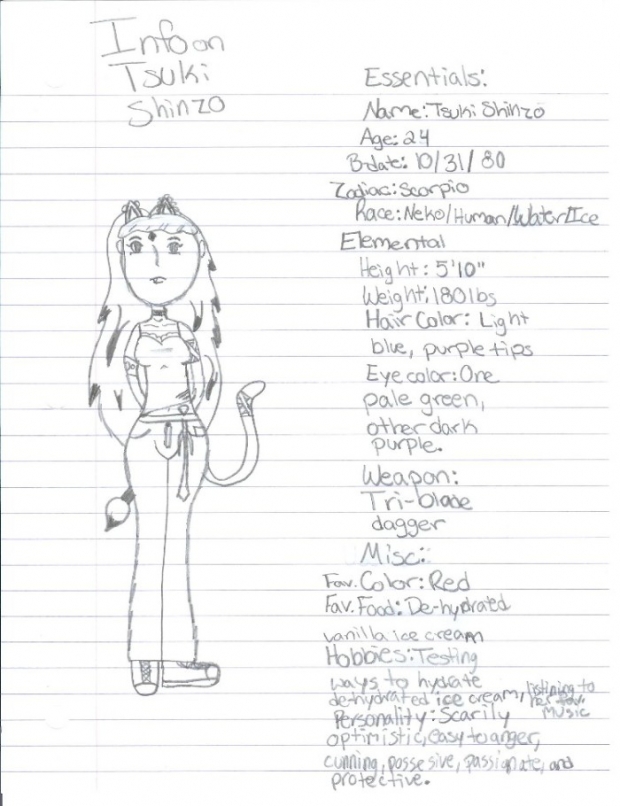 Info on
Tsuki
Shinzo
Essentials:
Name: Tsuki Shinzo
Age: 24
B-date: 10/31/80
Zodiac: Scorpio
Race: Neko/Human/Water/Ice
Elemental
Height: 5'10"
Weight: 180 lbs
Hair Color: Light
blue, purple tips
Eye color: One
pale green,
other dark
purple.
Weapon:
Tri-blade
dagger
Misc:
Fav. Color: Red
Fav. Food: De-hydrated
vanilla ice cream
Hobbies: Testing
ways to hydrate
de-hydrated ice cream, listining to
her fav.
Music
Personality: Scarily
optimistic, easy to anger,
cunning, possesive, passionate, and
protective.